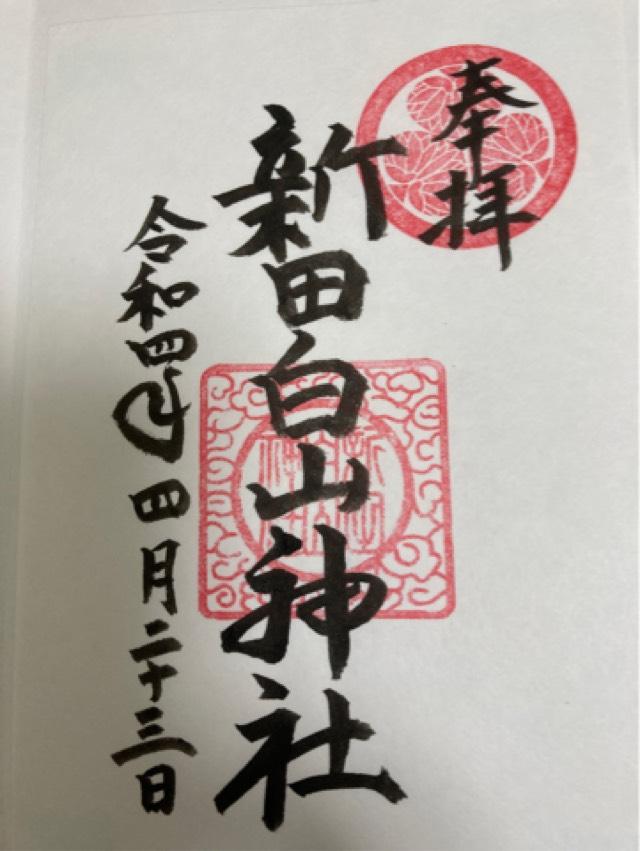 奉拝
新田白山神社
令和四年四月二十三日